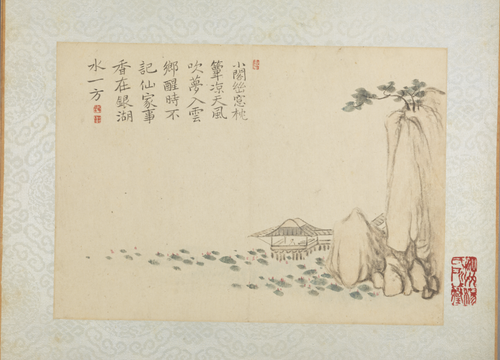 小閣幽窓枕
簟凉天風
吹夢入雲
鄉醒時不
記仙家事
香在銀湖
水一方